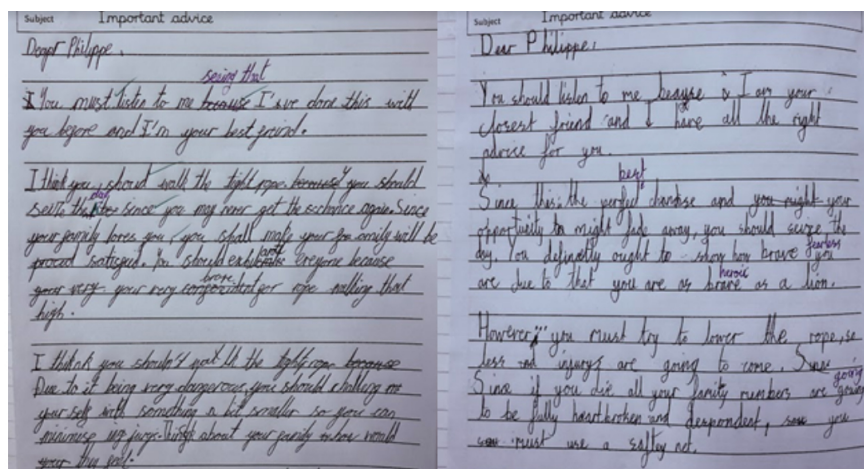 Subject Important advice
Dear Philippe,
seeing that
You must listen to me because I've done this with
you before and I'm your best freind.
I think you shoud walk the tight rope because you should
seize the day since you may never get this chance again. Since
your family loves you, you shall make your family will be
proud satisfied. You should everyone because
brave
your very your very for rope walling that
high.
I think you shouldn't walk the tight rope because
Due to it being very dangerous, you should challing
your self with something a bit smaller so you can
minimise injury. Think about your family how would
they feel.
Subject Important advice
Dear Philippe,
You should listen to me because I am your
closest friend and I have all the right
advice for you.
best
Since this the perfect chandse and you might your
opportunity might fade away, you should seize the
day. You definatly ought to show how brave fearless you
heroic
are due to that you are as brave as a lion.
However, you must try to lower the rope, so
less injurys are going to come. Since
going
Since if you die all your family members are going
to be fully heartbroken and despondent, so you
must use a saftey net.